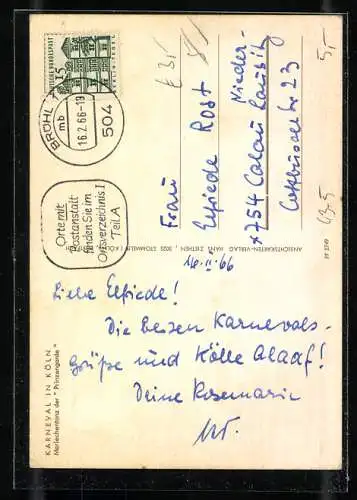 DEUTSCHE BUNDESPOST
15
BRÜHL
mb
16.2.66-19
504
Orte mit
Postanstalt
finden Sie im
Ortsverzeichnis I
Teil A
Frau
Elfriede Rost
x754 Calau
Nieder-
Lausitz
23
5,-
43.5
ANSICHTSKARTEN-VERLAG HANS ZIETHEN, 5023 / KÖLN
KARNEVAL IN KÖLN
Mariechentanz der "Prinzengarde"
Liebe Elfriede!
Die besten Karnevals-
grüße und Kölle Alaaf!
Deine Rosemarie